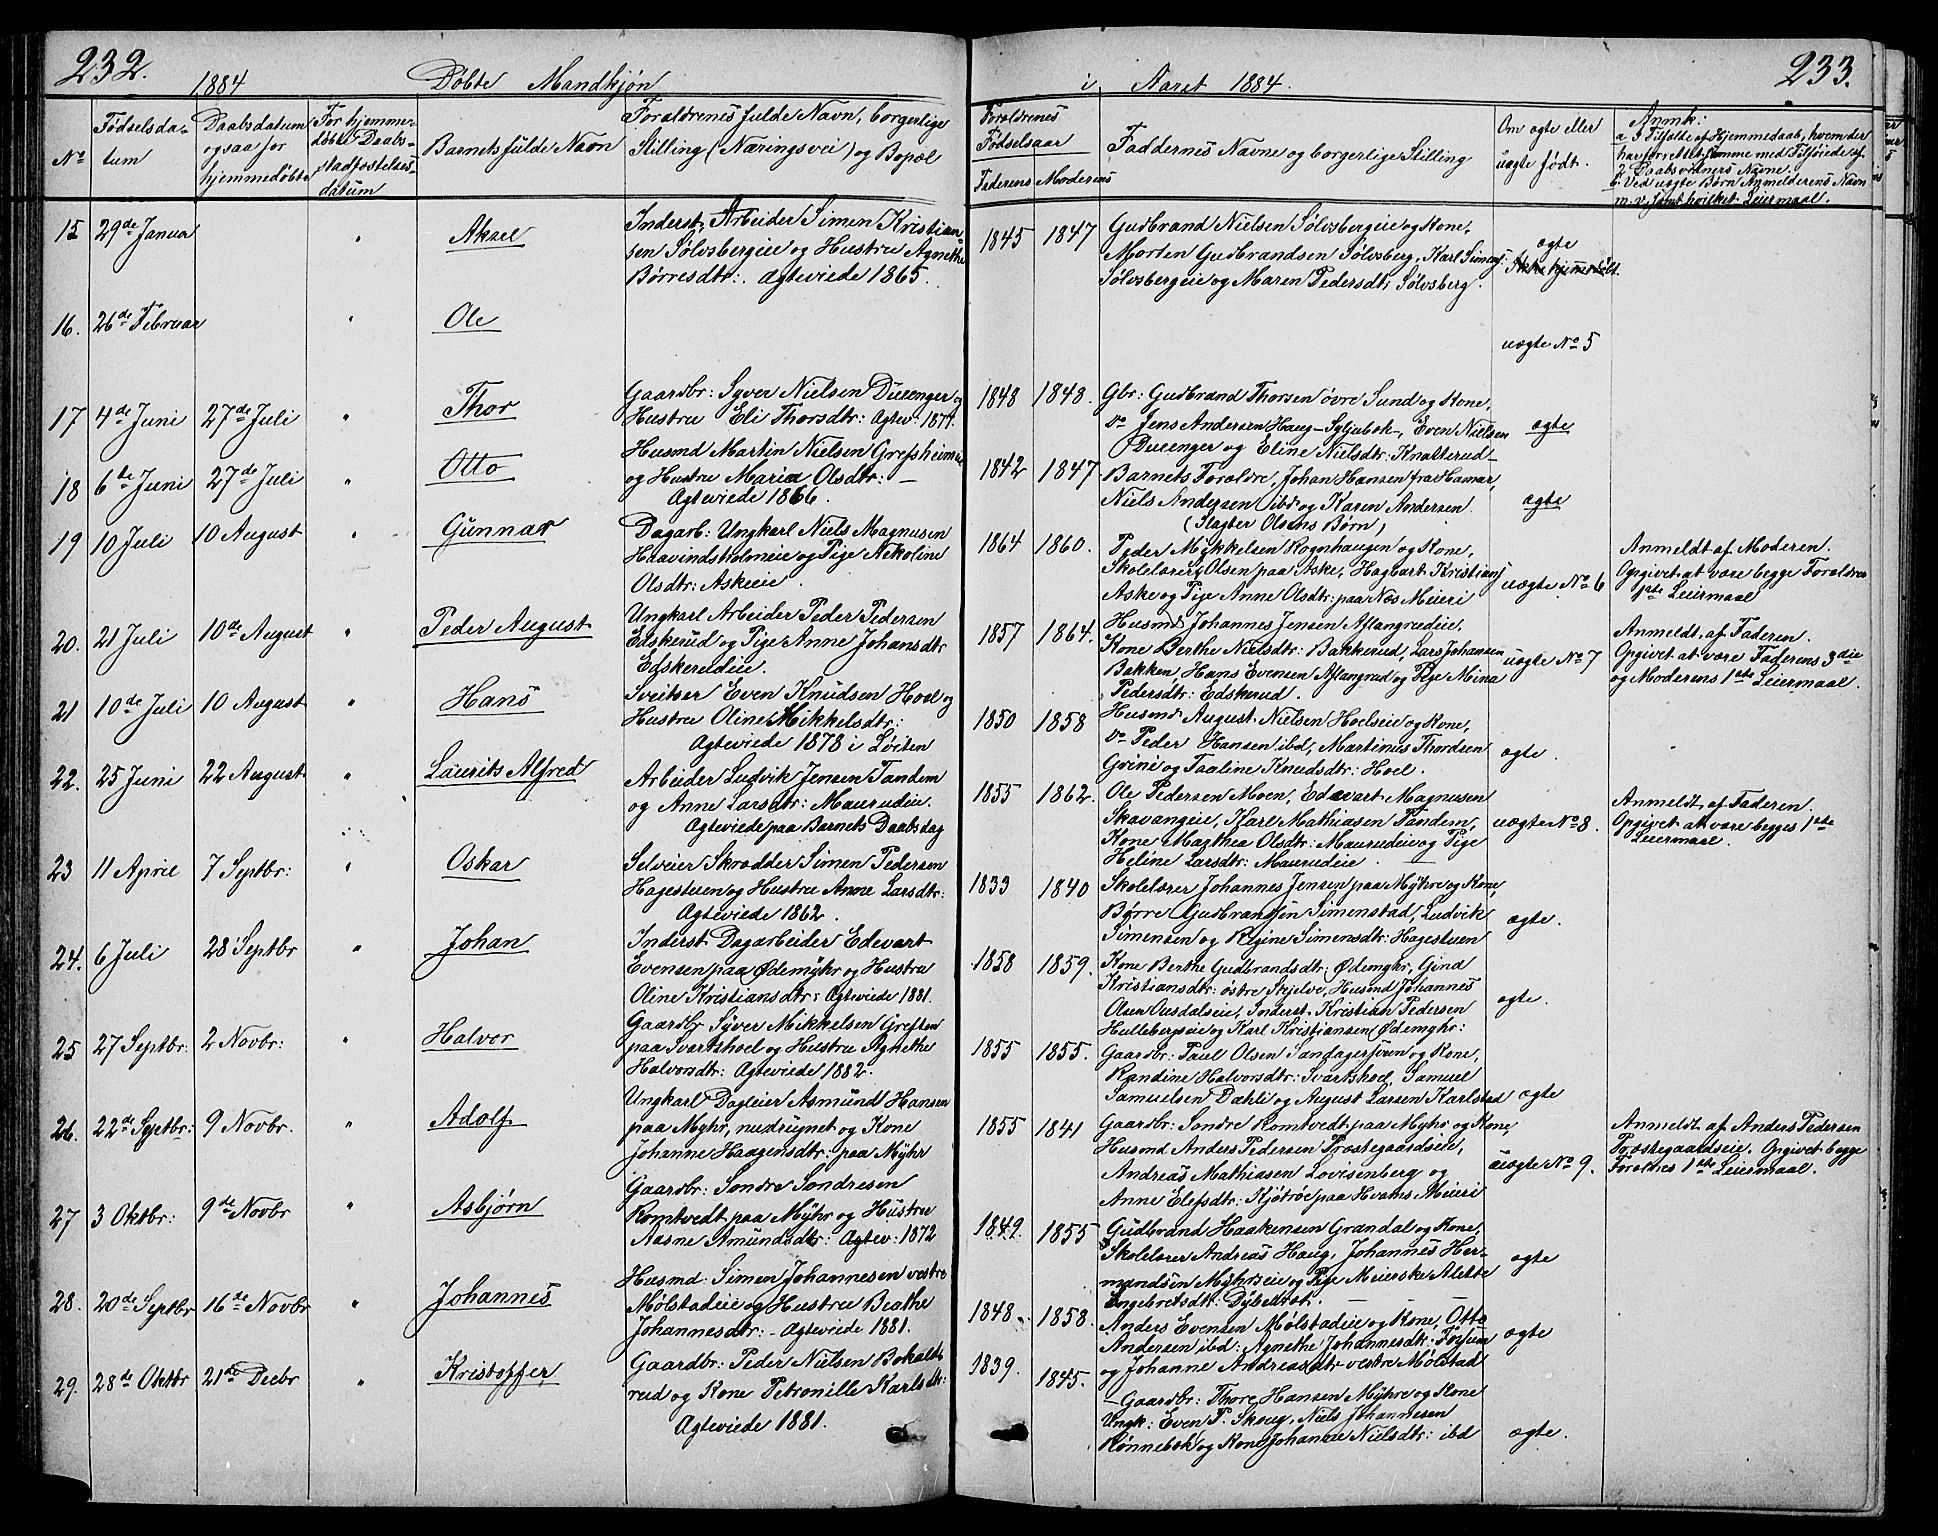 232.
1884 Döbte Mandkjøn
No
Fødselsda-
tum
Daabsdatum
ogsaa for
hjemmedøbte
For hjemme-
døbte Daabs-
stadfæstelses-
datum
Barnets fulde Navn
Forældrenes fulde Navn, borgerlige
Stilling (Næringsvei) og Bopæl
15 29de Januar " Aksel
Inderst, Arbeider Simen Kristian-
sen Sølvsbergeie og Hustru Agnethe
Børresdtr: Ægteviede 1865.
16. 26de Februar " Ole
17 4de Juni 27de Juli " Thor
Gaardbr: Syver Nielsen Duenger og
Hustru Eli Thorsdtr: Ægtev: 1877.
18 6te Juni 27de Juli " Otto
Husmd Martin Nielsen Grefsheimeie
og Hustru Maria Olsdtr: —
Ægteviede 1866.
19 10 Juli 10 August " Gunnar
Dagarb: Ungkarl Niels Magnusen
Haavindsholmeie og Pige Nikoline
Olsdtr: Askeeie.
20. 21 Juli 10de August " Peder August
Ungkarl Arbeider Peder Pedersen
Edskerud og Pige Anne Johansdtr
Edskerudeie.
21 10de Juli 10 August " Hans
Sveitser Even Knudsen Hoel og
Hustru Oline Mikkelsdtr:
Ægteviede 1878 i Løiten
22. 25 Juni 22 August " Laurits Alfred
Arbeider Ludvik Jensen Tandem
og Anne Larsdtr: Maurudeie.
Ægteviede paa Barnets Daabsdag
23 11 April 7 Septbr: " Oskar
Selveier Skrædder Simen Pedersen
Hagestuen og Hustru Anne Larsdtr:
Ægteviede 1862.
24. 6 Juli 28 Septbr " Johan
Inderst Dagarbeider Edevart
Evensen paa Ødemyhr og Hustru
Oline Kristiansdtr: Ægteviede 1881.
25 27 Septbr: 2 Novbr: " Halvor
Gaardbr Syver Mikkelsen Greften
paa Svartshoel og Hustru Agnethe
Halvorsdtr: Ægteviede 1882.
26. 22de Septbr: 9 Novbr. " Adolf
Ungkarl Dagleier Asmund Hansen
paa Myhr, nudrugnet og Kone
Johanne Haagensdtr: paa Myhr
27 3 Oktbr: 9de Novbr " Asbjørn
Gaardbr: Sondre Sondresen
Romtvedt paa Myhr og Hustru
Aasne Amundsdtr: Ægtev: 1872
28. 20de Septbr 16de Novbr " Johannes
Husmd: Simen Johannesen vestre
Mølstadeie og Hustru Beathe
Johannesdtr: - Ægteviede 1881.
29. 28de Oktbr 21de Decbr " Kristoffer
Gaardbr: Peder Nielsen Bakalt-
rud og Kone Petronille Karlsdtr:
Ægteviede 1881.
i Aaret 1884. 233.
Forældrenes
Fødselsaar
Faderens Moderens
Faddernes Navne og borgerlige Stilling
Om ægte eller
uægte født.
Anmk:
a I Tilfælde af Hjemmedaab, hvem der
har forrettet samme med Tilføiede af
2 Daabsvidners Navne.
b. Ved uægte Børn Anmelderens Navn
m. v. samt hvilket Leiermaal.
1845 1847
Gudbrand Nielsen Sølvsbergeie og Kone,
Morten Gudbrandsen Sølvsberg, Karl Simens:
Sølvsbergeie og Maren Pedersdtr, Sølvsberg.
ægte
Ikke hjemmedøbt.
uægte No 5
1848 1848.
Gbr: Gudbrand Thorsen øvre Sund og Kone,
Do Jens Andersen Haug - Syljubok -, Even Nielsen
Duenger og Eline Nielsdtr: Knatterud -
ægte
1842 1847
Barnets Forældre, Johan Hansen fra Hamar,
Niels Andersen ibd og Karen Andersen.
(Slagter Olsens Børn)
ægte
1864 1860.
Peder Mykkelsen Rognhaugen og Kone,
Skolelærer Olsen paa Aske, Hagbart Kristians
Aske og Pige Anne Olsdtr: paa Næs Meieri
uægte No 6
Anmeldt af Moderen.
Opgivet at være begge Forældres
1ste Leiermaal
1857 1864.
Husmd Johannes Jensen Aflangrudeie,
Kone Berthe Nielsdtr: Bakkerud, Lars Johansen
Bakken, Hans Evensen Aflangrud og Pige Mina
Pedersdtr: Edskerud.
uægte No 7
Anmeldt af Faderen.
Opgivet at være Faderens 3die
og Moderens 1ste Leiermaal.
1850 1858
Husmd August Nielsen Hoelseie og Kone,
Do Peder Hansen ibd, Martinus Thordsen
Grini og Taaline Knudsdtr: Hoel.
ægte.
1855 1862.
Ole Pedersen Moen, Edevart Magnusen
Skavangeie, Karl Mathiasen Tandem,
Kone Mathea Olsdtr: Maurudeie og Pige
Heline Larsdtr: Maurudeie.
uægte No 8.
Anmeldt af Faderen.
Opgivet at være begges 1ste
Leiermaal.
1833 1840
Skolelærer Johannes Jensen paa Myhre og Kone,
Børre Gudbrandsen Simenstad, Ludvik
Simensen og Regine Simensdtr: Hagestuen
ægte.
1858 1859.
Kone Berthe Gudbrandsdtr: Ødemyhr, Gina
Kristiansdtr: østre Skjelve, Husmd Johannes
Olsen Ousdalseie, Inderst Kristian Pedersen
Hullebergseie og Karl Kristiansen Ødemyhr:
ægte.
1855 1855.
Gaardbr: Paul Olsen Sandagersveen og Kone,
Randine Halvorsdtr: Svartshoel, Samuel
Samuelsen Dæhli og August Larsen Karlstad
ægte
1855 1841
Gaardbr: Sondre Romtvedt paa Myhr og Kone,
Husmd Anders Pedersen Præstegaardseie,
Andreas Mathiasen Lovisenberg og
Anne Elefsdtr: Kjøtrøe paa Hvams Meieri
uægte No 9.
Anmeldt af Anders Pedersen
Præstegaardseie. Opgivet begge
Forældres 1ste Leiermaal.
1849. 1855
Gudbrand Haakensen Grandal og Kone,
Skolelærer Andreas Haug, Johannes Her-
mandsen Myhrseie og Pige Meierske Alette
Engebretsdtr: Dybedræt.
ægte
1848. 1858.
Anders Evensen Mølstadeie og Kone, Otto
Andersen ibd: Agnethe Johannesdtr: Forsum
og Johanne Andreasdtr vestre Mølstad
ægte
1839. 1845.
— Gaardbr: Thore Hansen Myhre og Kone
Ungk: Even P. Skoug, Niels Johannesen
Rønnebok og Kone Johanne Nielsdtr: ibd
ægte.